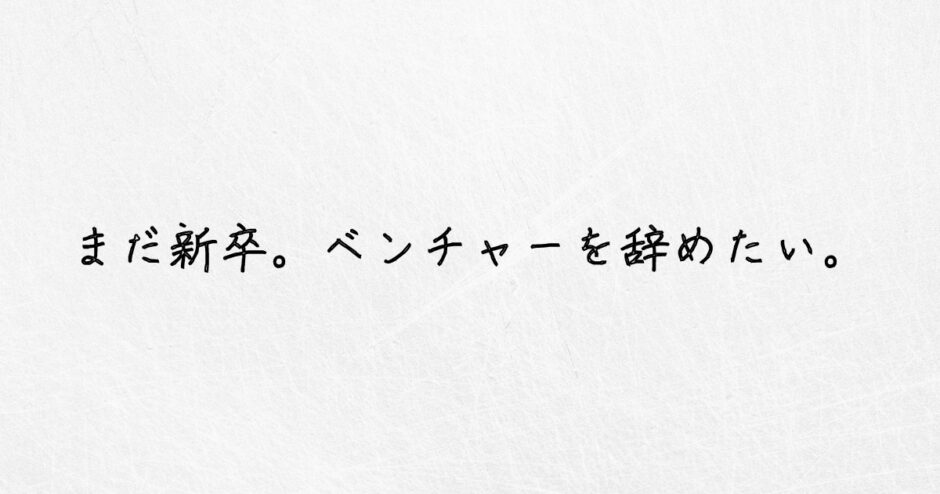 まだ新卒。ベンチャーを辞めたい。